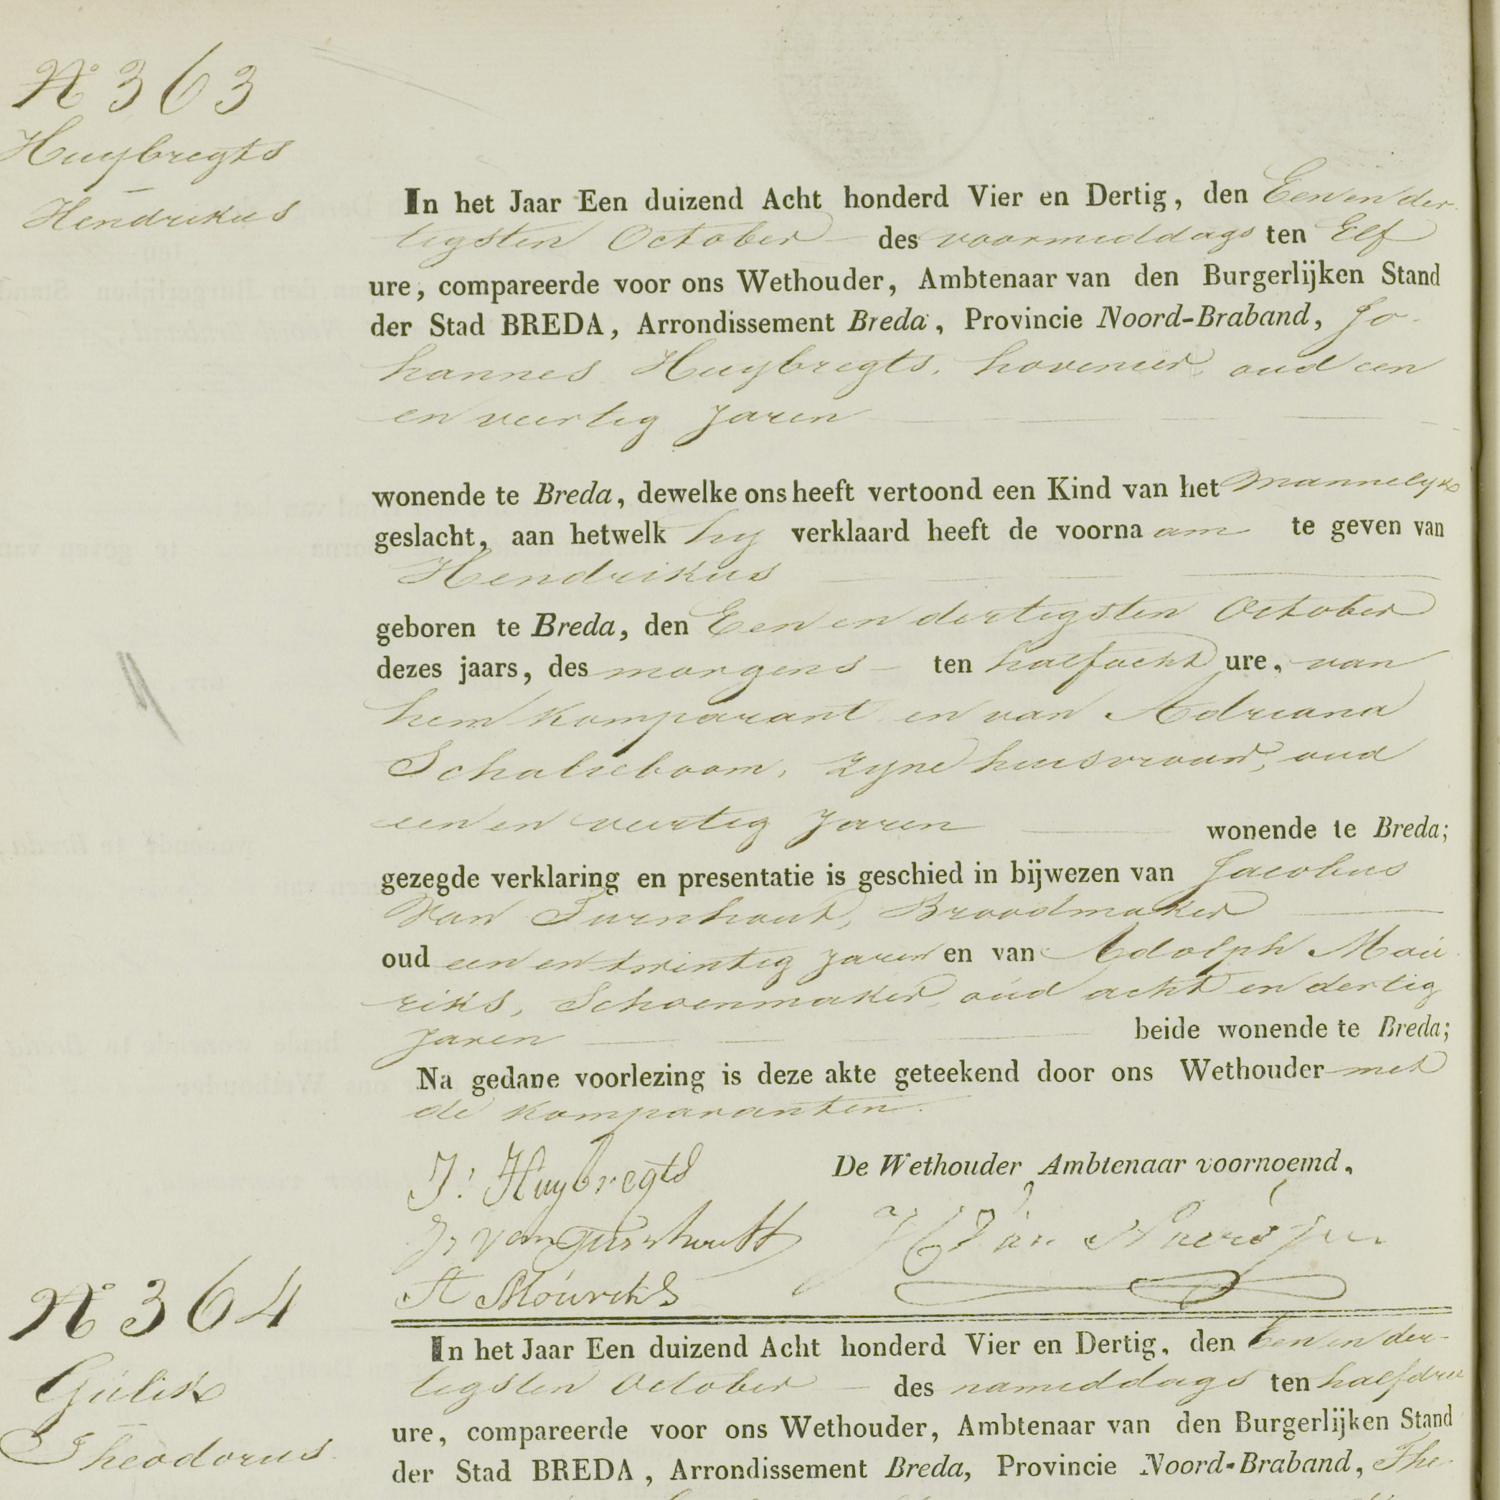 N° 363
Huybregts
Hendrikus
In het Jaar Een duizend Acht honderd Vier en Dertig, den Een en der-
tigsten October des voormiddags ten Elf
ure, compareerde voor ons Wethouder, Ambtenaar van den Burgerlijken Stand
der Stad BREDA, Arrondissement Breda, Provincie Noord-Braband, Jo-
hannes Huybregts, hovenier, oud een
en veertig Jaren
wonende te Breda, dewelke ons heeft vertoond een Kind van het Mannelyk
geslacht, aan hetwelk hy verklaard heeft de voorna am te geven van
Hendrikus
geboren te Breda, den Een en dertigsten October
dezes jaars, des morgens ten half acht ure, van
hem Komparant en van Adriana
Schalieboom, zyne huisvrouw, oud
een en veertig Jaren wonende te Breda;
gezegde verklaring en presentatie is geschied in bijwezen van Jacobus
Van Turnhout, Broodmaker
oud een en twintig Jaren en van Adolph Moú-
riks, Schoenmaker, oud acht en dertig
Jaren beide wonende te Breda;
Na gedane voorlezing is deze akte geteekend door ons Wethouder met
de komparanten.
J: Huybregts
De Wethouder Ambtenaar voornoemd,
Js van Turnhoutt
A Moúriks
N° 364
Gúlik
Theodorus
In het Jaar Een duizend Acht honderd Vier en Dertig, den Een en der-
tigsten October des nameddags ten half drie
ure, compareerde voor ons Wethouder, Ambtenaar van den Burgerlijken Stand
der Stad BREDA, Arrondissement Breda, Provincie Noord-Braband, The-